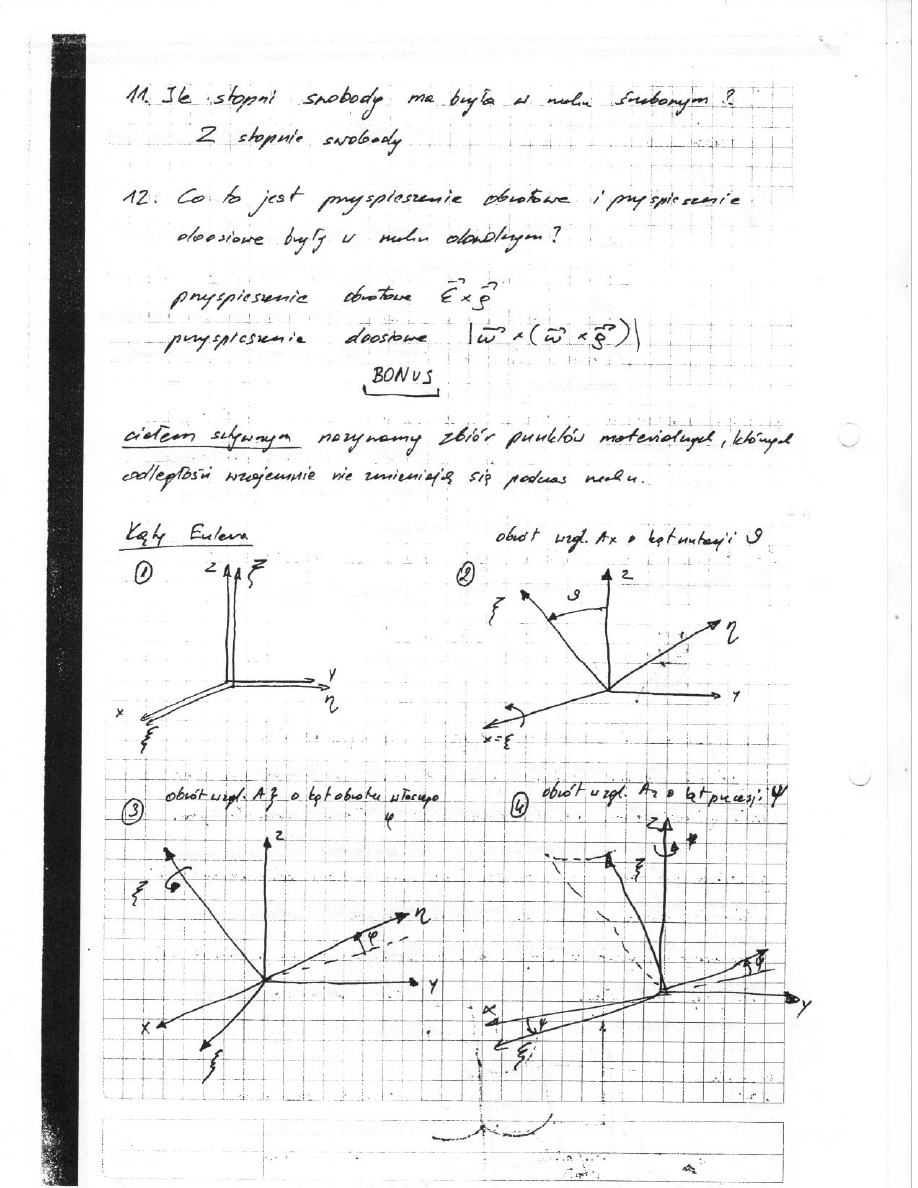 11. Ile stopni swobody ma bryła w ruchu śrubowym?
2 stopnie swobody
12. Co to jest przyspieszenie obrotowe i przyspieszenie
doosiowe bryły w ruchu obrotowym?
przyspieszenie obrotowe ε⃗ × ρ⃗
przyspieszenie doosiowe |ω⃗ × (ω⃗ × ρ⃗)|
BONUS
ciałem sztywnym nazywamy zbiór punktów materialnych, których
odległości wzajemnie nie zmieniają się podczas ruchu.
Kąty Eulera
obrót wzgl. Ax o kąt nutacji ϑ
①
z ζ
y
η
x
ξ
②
z
ζ
ϑ
η
y
x=ξ
③ obrót wzgl. Aζ o kąt obrotu własnego
φ
z
ζ
φ
η
φ
y
x
ξ
④ obrót wzgl. Az o kąt precesji ψ
z
ψ
ζ
ψ
y
x
ψ
ξ